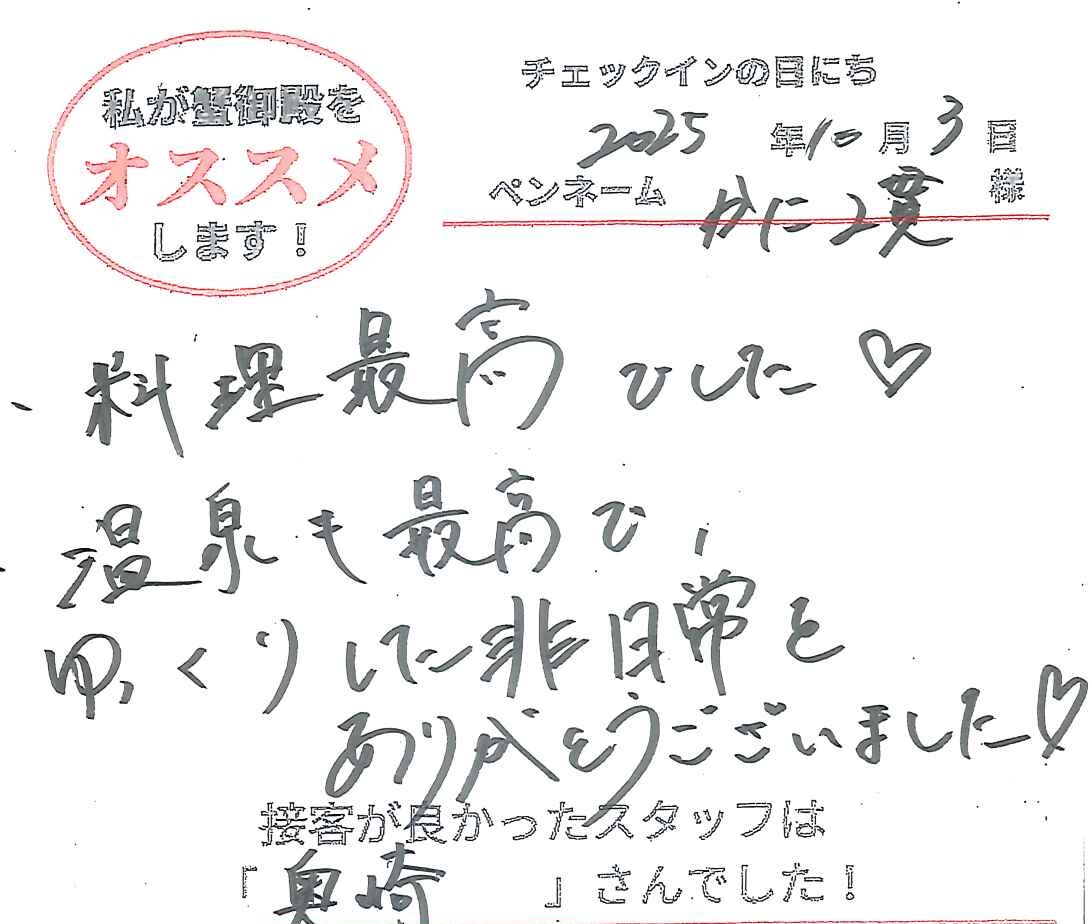 私が蟹御殿を
オススメ
します!
チェックインの日にち
2025年10月3日
ペンネーム かに2貫 様
料理最高でした♡
温泉も最高で、
ゆっくりした非日常を
ありがとうございました♡
接客が良かったスタッフは
「奥崎」さんでした!